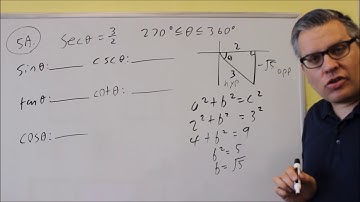 5A. secθ = 3/2 270° ≤ θ ≤ 360°
sinθ: cscθ:
tanθ: cotθ:
cosθ:
2
θ
3
hyp
-√5
opp
a² + b² = c²
2² + b² = 3²
4 + b² = 9
b² = 5
b = √5